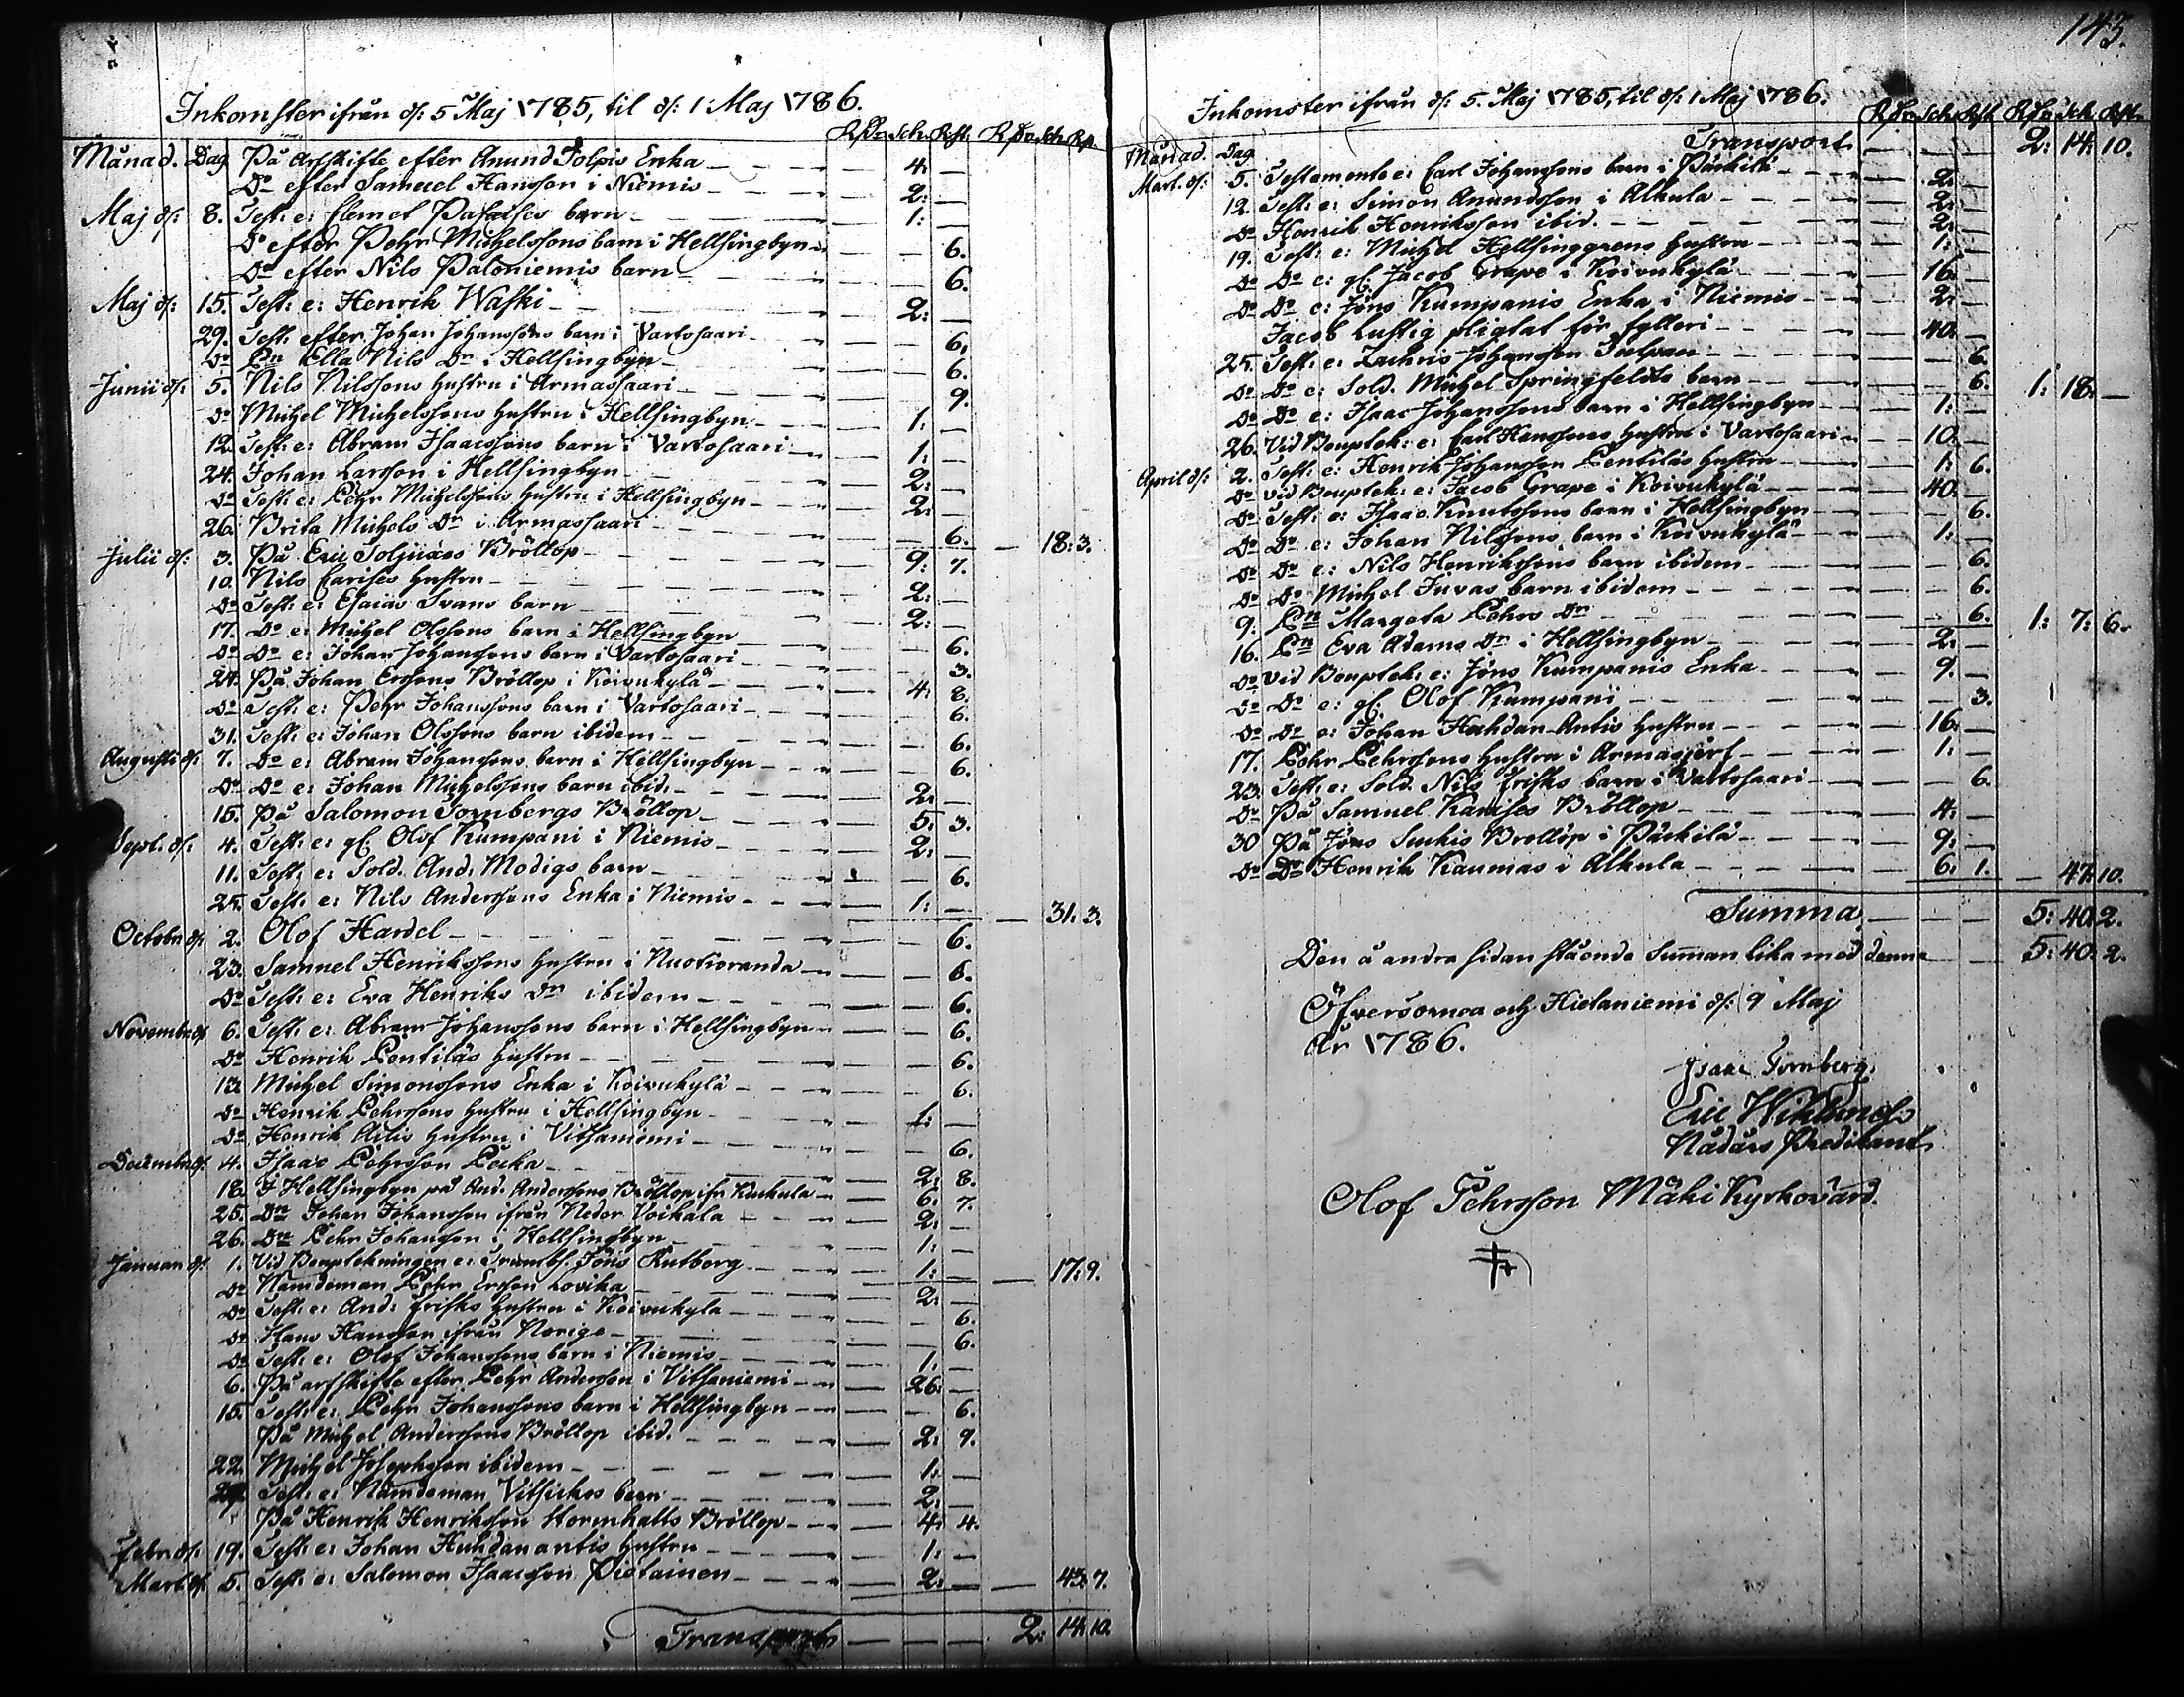 Inkomster ifrån d: 5 Maj 1785, til d: 1 Maj 1786.
RDr Sch. Rst. RDr Sch Rst.
Månad. Dag På Arfskifte efter Anund Tolpis Enka 4: —
Do efter Samuel Hansson i Niemis 2: —
Maj d: 8. Test: e: Clemet barn 1: —
Do efter Pehr Michelssons barn i Hellsingbyn 6.
Do efter Nils Paloniemis barn 6.
Maj d: 15. Test: e: Henrik Waski 2: —
29. Test: efter Johan Johanssons barn i Vartosaari 6.
Do Pn Ella Nils Dr i Hellsingbyn 6.
Junii d: 5. Nils Nilssons hustru i Armassaari 9.
Do Michel Michelssons hustru i Hellsingbyn 1: —
12. Test: e: Abram Isaacssons barn i Vartosaari 1: —
24. Johan Larsson i Hellsingbyn 2: —
Do Test: e: Pehr Michelssons hustru i Hellsingbyn 2: —
26. Brita Michels Dr i Armassaari 6. — 18: 3.
Julii d: 3. På Eric Bröllop 9: 7.
10. Nils hustru 2: —
Do Test: e: Esaias Svans barn 2: —
17. Do e: Michel Olssons barn i Hellsingbyn 6.
Do Do e: Johan Johanssons barn i Vartosaari 3.
24. På Johan Erssons Bröllop i Koivukylä 4: 8.
Do Test: e: Pehr Johanssons barn i Vartosaari 6.
31. Test: e: Johan Olssons barn ibidem 6.
Augusti d: 7. Do e: Abram Johanssons barn i Hellsingbyn 6.
Do Do e: Johan Michelssons barn ibid: 2: —
15. På Salomon Tornbergs Bröllop 5: 3.
Sept. d: 4. Test: e: gl. Olof Kumpani i Niemis 2: —
11. Test: e: Sold. And: Modigs barn 6.
25. Test: e: Nils Anderssons Enka i Niemis 1: — — 31: 3.
October d: 2. Olof Hardel 6.
23. Samuel Henrikssons hustru i Nuotioranda 6.
Do Test: e: Eva Henriks Dr ibidem 6.
Novembr. d: 6. Test: e: Abram Johanssons barn i Hellsingbyn 6.
Do Henrik Pentiläs hustru 6.
13. Michel Simonssons Enka i Koivukylä 6.
Do Henrik Pehrssons hustru i Hellsingbyn 1: —
Do Henrik hustru i Vitsaniemi 6.
Decembr d: 4. Isaac Pehrsson 2: 8.
18. I Hellsingbyn på And. Anderssons Bröllop ifr. 6: 7.
25. Dn Johan Johansson ifrån Neder Voikala 2: —
26. Dn Pehr Johansson i Hellsingbyn 1: —
Januari d: 1. Vid Boupteckningen e: Jöns Rutberg 1: — — 17: 9.
Do Nämdeman Pehr Ersson Lovika 2: —
Do Test: e: And: Frisks hustru i Koivukyla 6.
Do Hans Hansson ifrån Norige 6.
Do Test: e: Olof Johanssons barn i Niemis 1: —
6. På arfskifte efter Pehr Andersson i Vitsaniemi 26: —
15. Test: e: Pehr Johanssons barn i Hellsingbyn 6.
På Michel Anderssons Bröllop ibid. 2: 9.
22. Michel Josephsson ibidem 1: —
29. Test: e: Nämdeman barn 2: —
På Henrik Henriksson Bröllop 4: 4.
Febr. d: 19. Test: e: Johan Huhdanantis hustru 1: —
Mart. d: 5. Test: e: Salomon Isaacsson Pietainen 2: — — 43: 7.
Transport — — — 2: 14: 10.
143.
Inkomster ifrån d: 5. Maj 1785, til d: 1 Maj 1786.
RDr Sch Rst RDr Sch Rst.
Månad. Dag Transport — — — 2: 14: 10.
Mart. d: 5. Testamente e: Carl Johanssons barn i Päckilä 2: —
12. Test: e: Simon Anundsson i Alkula 2: —
Do Henrik Henriksson ibid. 2: —
19. Test: e: Michel Hellsinggrens hustru 1: —
Do Do e: gl. Jacob Grape i Koivukylä 16: —
Do Do e: Jöns Kumpanis Enka i Niemis 2: —
Jacob Lustig pligtat för fylleri 40: —
25. Test: e: Zachris Johansson 6.
Do Do e: Sold. Michel Springfeldts barn 6. 1: 18: —
Do Do e: Isaac Johanssons barn i Hellsingbyn 1: —
26. Vid Bouptek: e: Carl Hanssons hustru i Vartosaari 10: —
April d: 2. Test: e: Henrik Johansson Pentiläs hustru 1: 6.
Do vid Bouptek: e: Jacob Grape i Koivukylä 40: —
Do Test: e: Isaac Knutssons barn i Hellsingbyn 6.
Do Do e: Johan Nilssons barn i Koivukylä 1: —
Do Do e: Nils Henrikssons barn ibidem 6.
Do Do Michel Juvas barn ibidem 6.
9. Pn Margeta Pehrs Dr 6. 1: 7: 6.
16. Pn Eva Adams Dr i Hellsingbyn 2: —
Do Vid Bouptek: e: Jöns Kumpanis Enka 9. —
Do Do e: gl. Olof Kumpani 3.
Do Do e: Johan Huhdan-Antis hustru 16: —
17. Pehr Pehrssons hustru i Armasjerf 1: —
23. Test: e: Sold. Nils Frisks barn i Vartosaari 6.
Do På Samuel Bröllop 4: —
30 På Jöns Bröllop i Päckilä 9: —
Do Do Henrik Kaumas i Alkula 6: 1. — 47: 10.
Summa — — — 5: 40: 2.
Den å andra sidan stående Summan lika med denna — — 5: 40: 2.
Öfvertornea och Hietaniemi d: 9 Maj
År 1786.
Isaac Tornberg.
Eric
Nådårs Predikant
Olof Pehrsson Mäki Kyrkovärd.